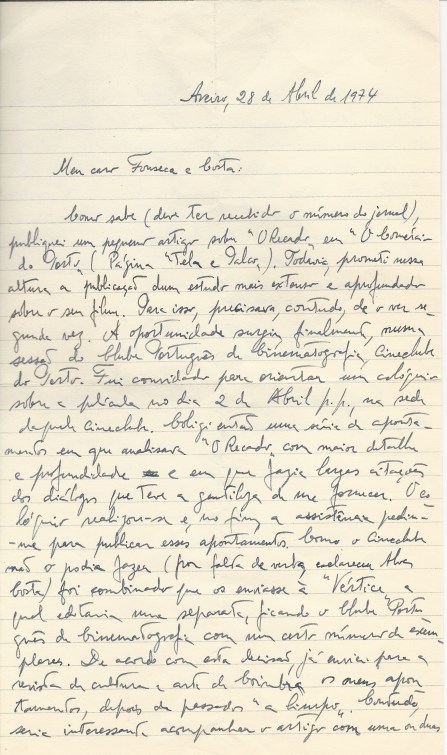 Aveiro, 28 de Abril de 1974
Meu caro Fonseca e Costa:
Como sabe (deve ter recebido o número do jornal),
publiquei um pequeno artigo sobre "O Recado" em "O Comércio
do Porto" (Página "Tela e Palco"). Todavia, prometi nessa
altura a publicação dum estudo mais extenso e aprofundado
sobre o seu filme. Para isso, precisava, contudo, de o ver se-
gunda vez. A oportunidade surgiu, finalmente, numa
sessão do Clube Português de Cinematografia, Cineclube
do Porto. Fui convidado para orientar um colóquio
sobre a película no dia 2 de Abril p.p., na sede
daquele Cineclube. Coligi então uma série de aponta-
mentos em que analisava "O Recado" com maior detalhe
e profundidade e em que fazia largas citações
dos diálogos que teve a gentileza de me fornecer. O co-
lóquio realizou-se e, no fim, a assistência pediu-
-me para publicar esses apontamentos. Como o Cineclube
não o podia fazer (por falta de verba, esclareceu Alves
Costa) foi combinado que os enviasse à "Vértice", a
qual editaria uma separata, ficando o Clube Portu-
guês de Cinematografia com um certo número de exem-
plares. De acordo com esta decisão já enviei para a
revista de cultura e arte de Coimbra os meus apon-
tamentos, depois de passados "a limpo". Contudo,
seria interessante acompanhar o artigo com uma ou duas